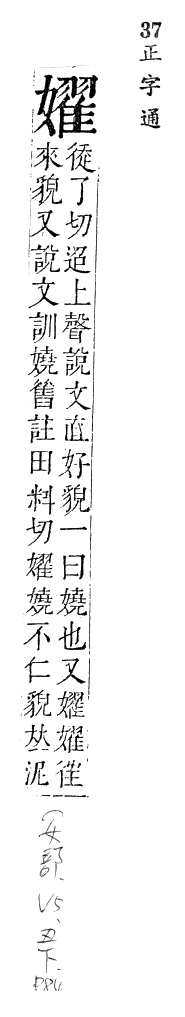 37
正字通
嬥
徒了切迢上聲說文直好貌一曰嬈也又嬥嬥徃
來貌又說文訓嬈舊註田料切嬥嬈不仁貌𠀤泥
(女部、V5、丑下、P84)